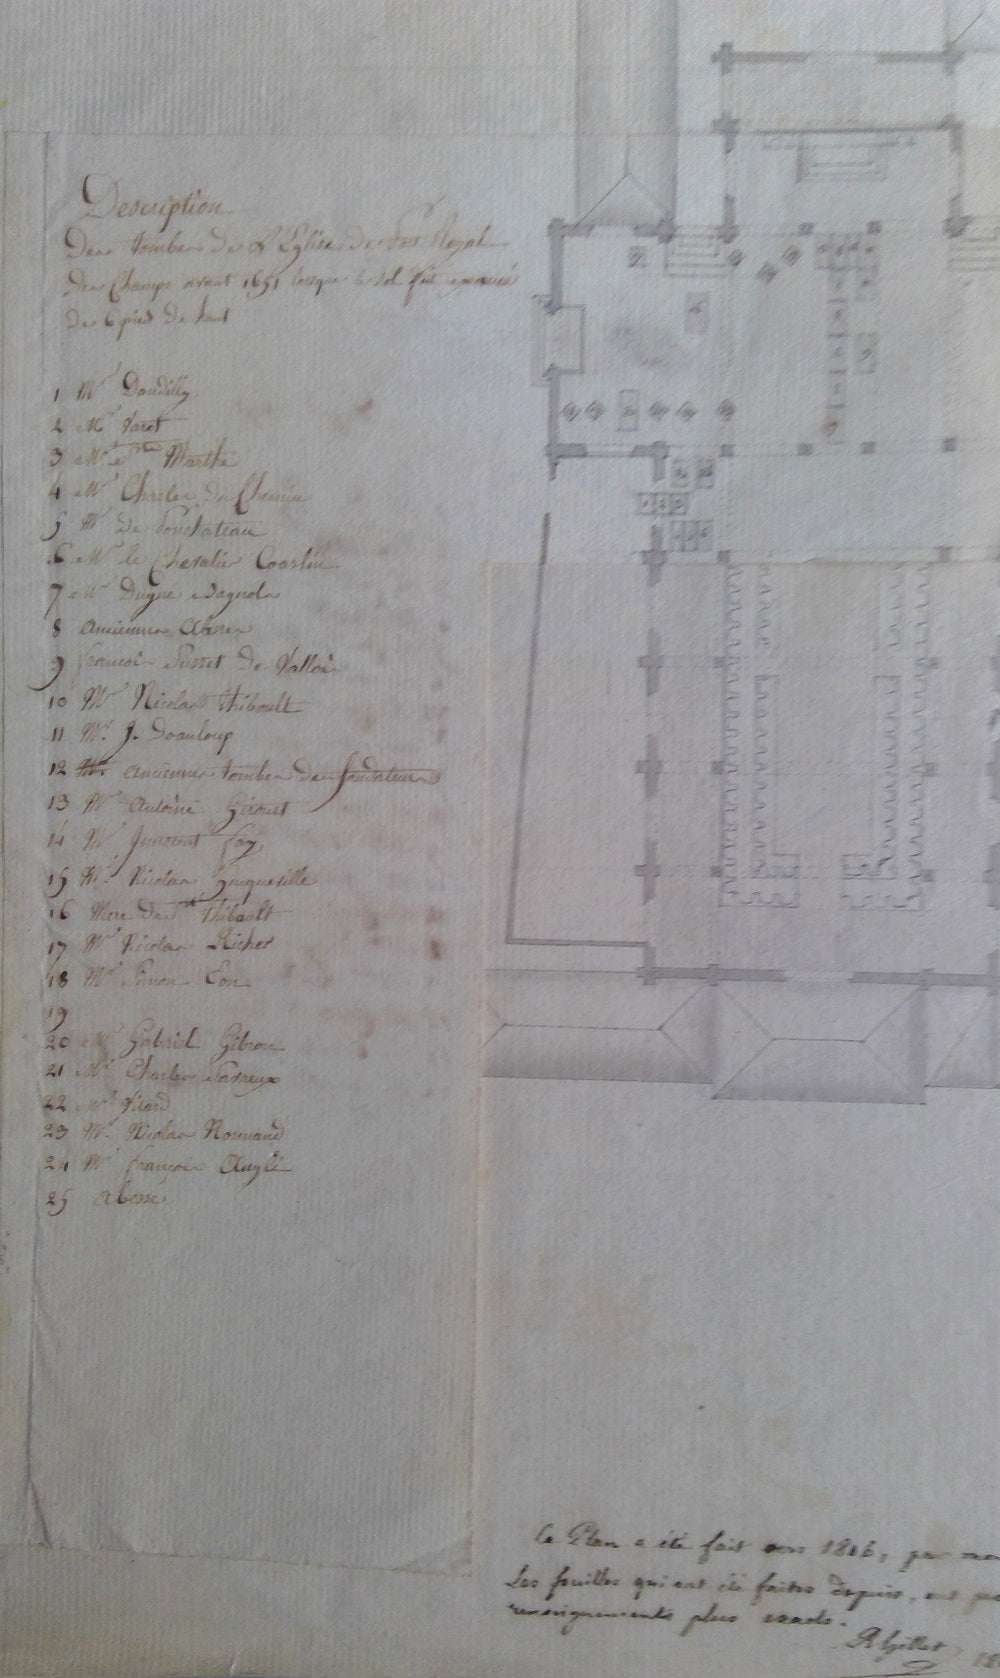 Description
Des tombes de L'Eglise de Port Royal
Des Champs avant 1651 lorsque le sol fut exaussé
de 6 pied de haut
1 Mr Dandilly
2 Mr Varet
3 Mr de Ste Marthe
4 Mr Charles du Chemin
5 Mr de Ponchateau
6 Mr le Chevalier Coaslin
7 Mr Dugué Bagnols
8 Anciennes Abbes
9 françois Susset de Valloi
10 Mr Nicolas Thiboult
11 Mr. J. Deauloup
12 Anciennes tombes des fondateurs
13 Mr Antoine Giroust
14 Mr Innocent fay
15 Mr. Nicolas
16 Mere de Mr Thibault
17 Mr Nicolas Richer
18 Mr Simon Eon
19
20 Mr Gabriel Gibron
21 Mr Charles
22 Mr Vitard
23 Mr. Nicolas Normand
24 Mr françois Anglé
25 Abesse
Ce Plan a été fait vers 1816, par
Les fouilles qui ont été faites depuis, ont
renseignements plus exacts.
R Gillet